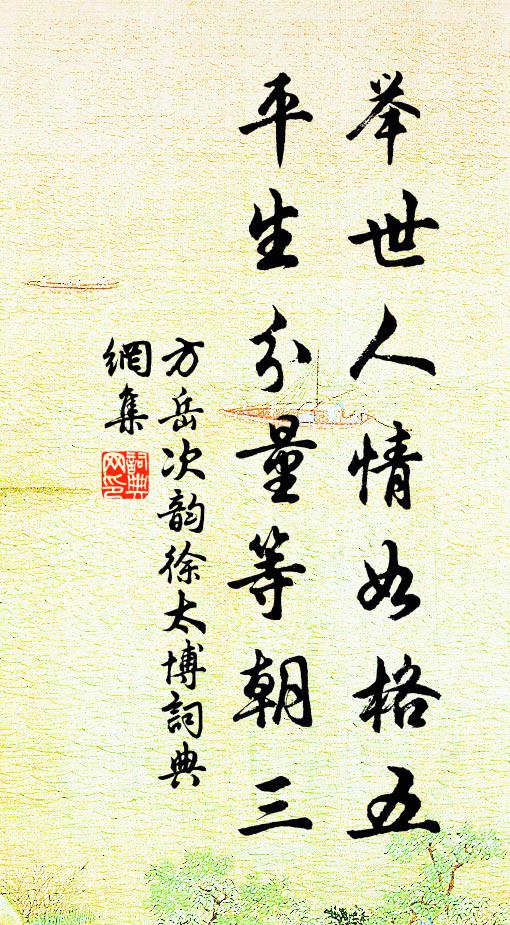 举世人情如格五
平生分量等朝三
方岳次韵徐太博词典
網集
詞典網印